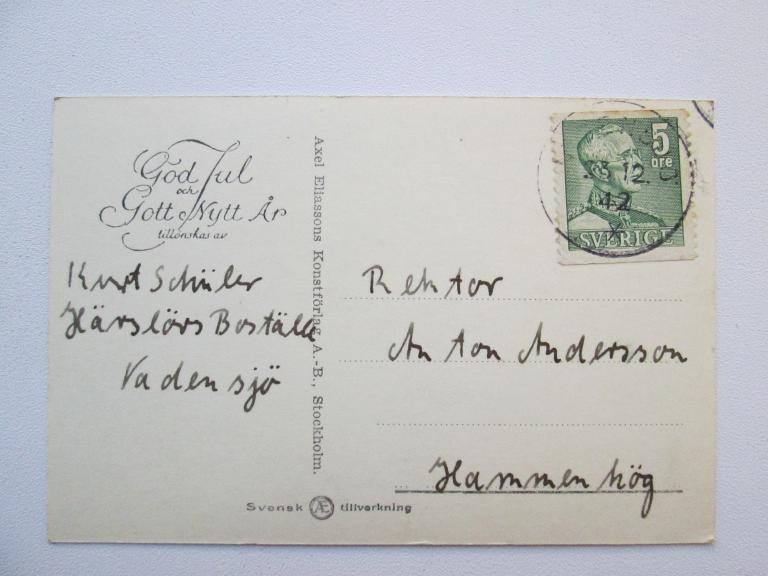 God Jul
och
Gott Nytt År
tillönskas av
Kurt Schüler
Härslövs Boställe
Vadensjö
Axel Eliassons Konstförlag A.-B., Stockholm.
5
öre
SVERIGE
12
42
Rektor
Anton Andersson
Hammenhög
Svensk AE tillverkning